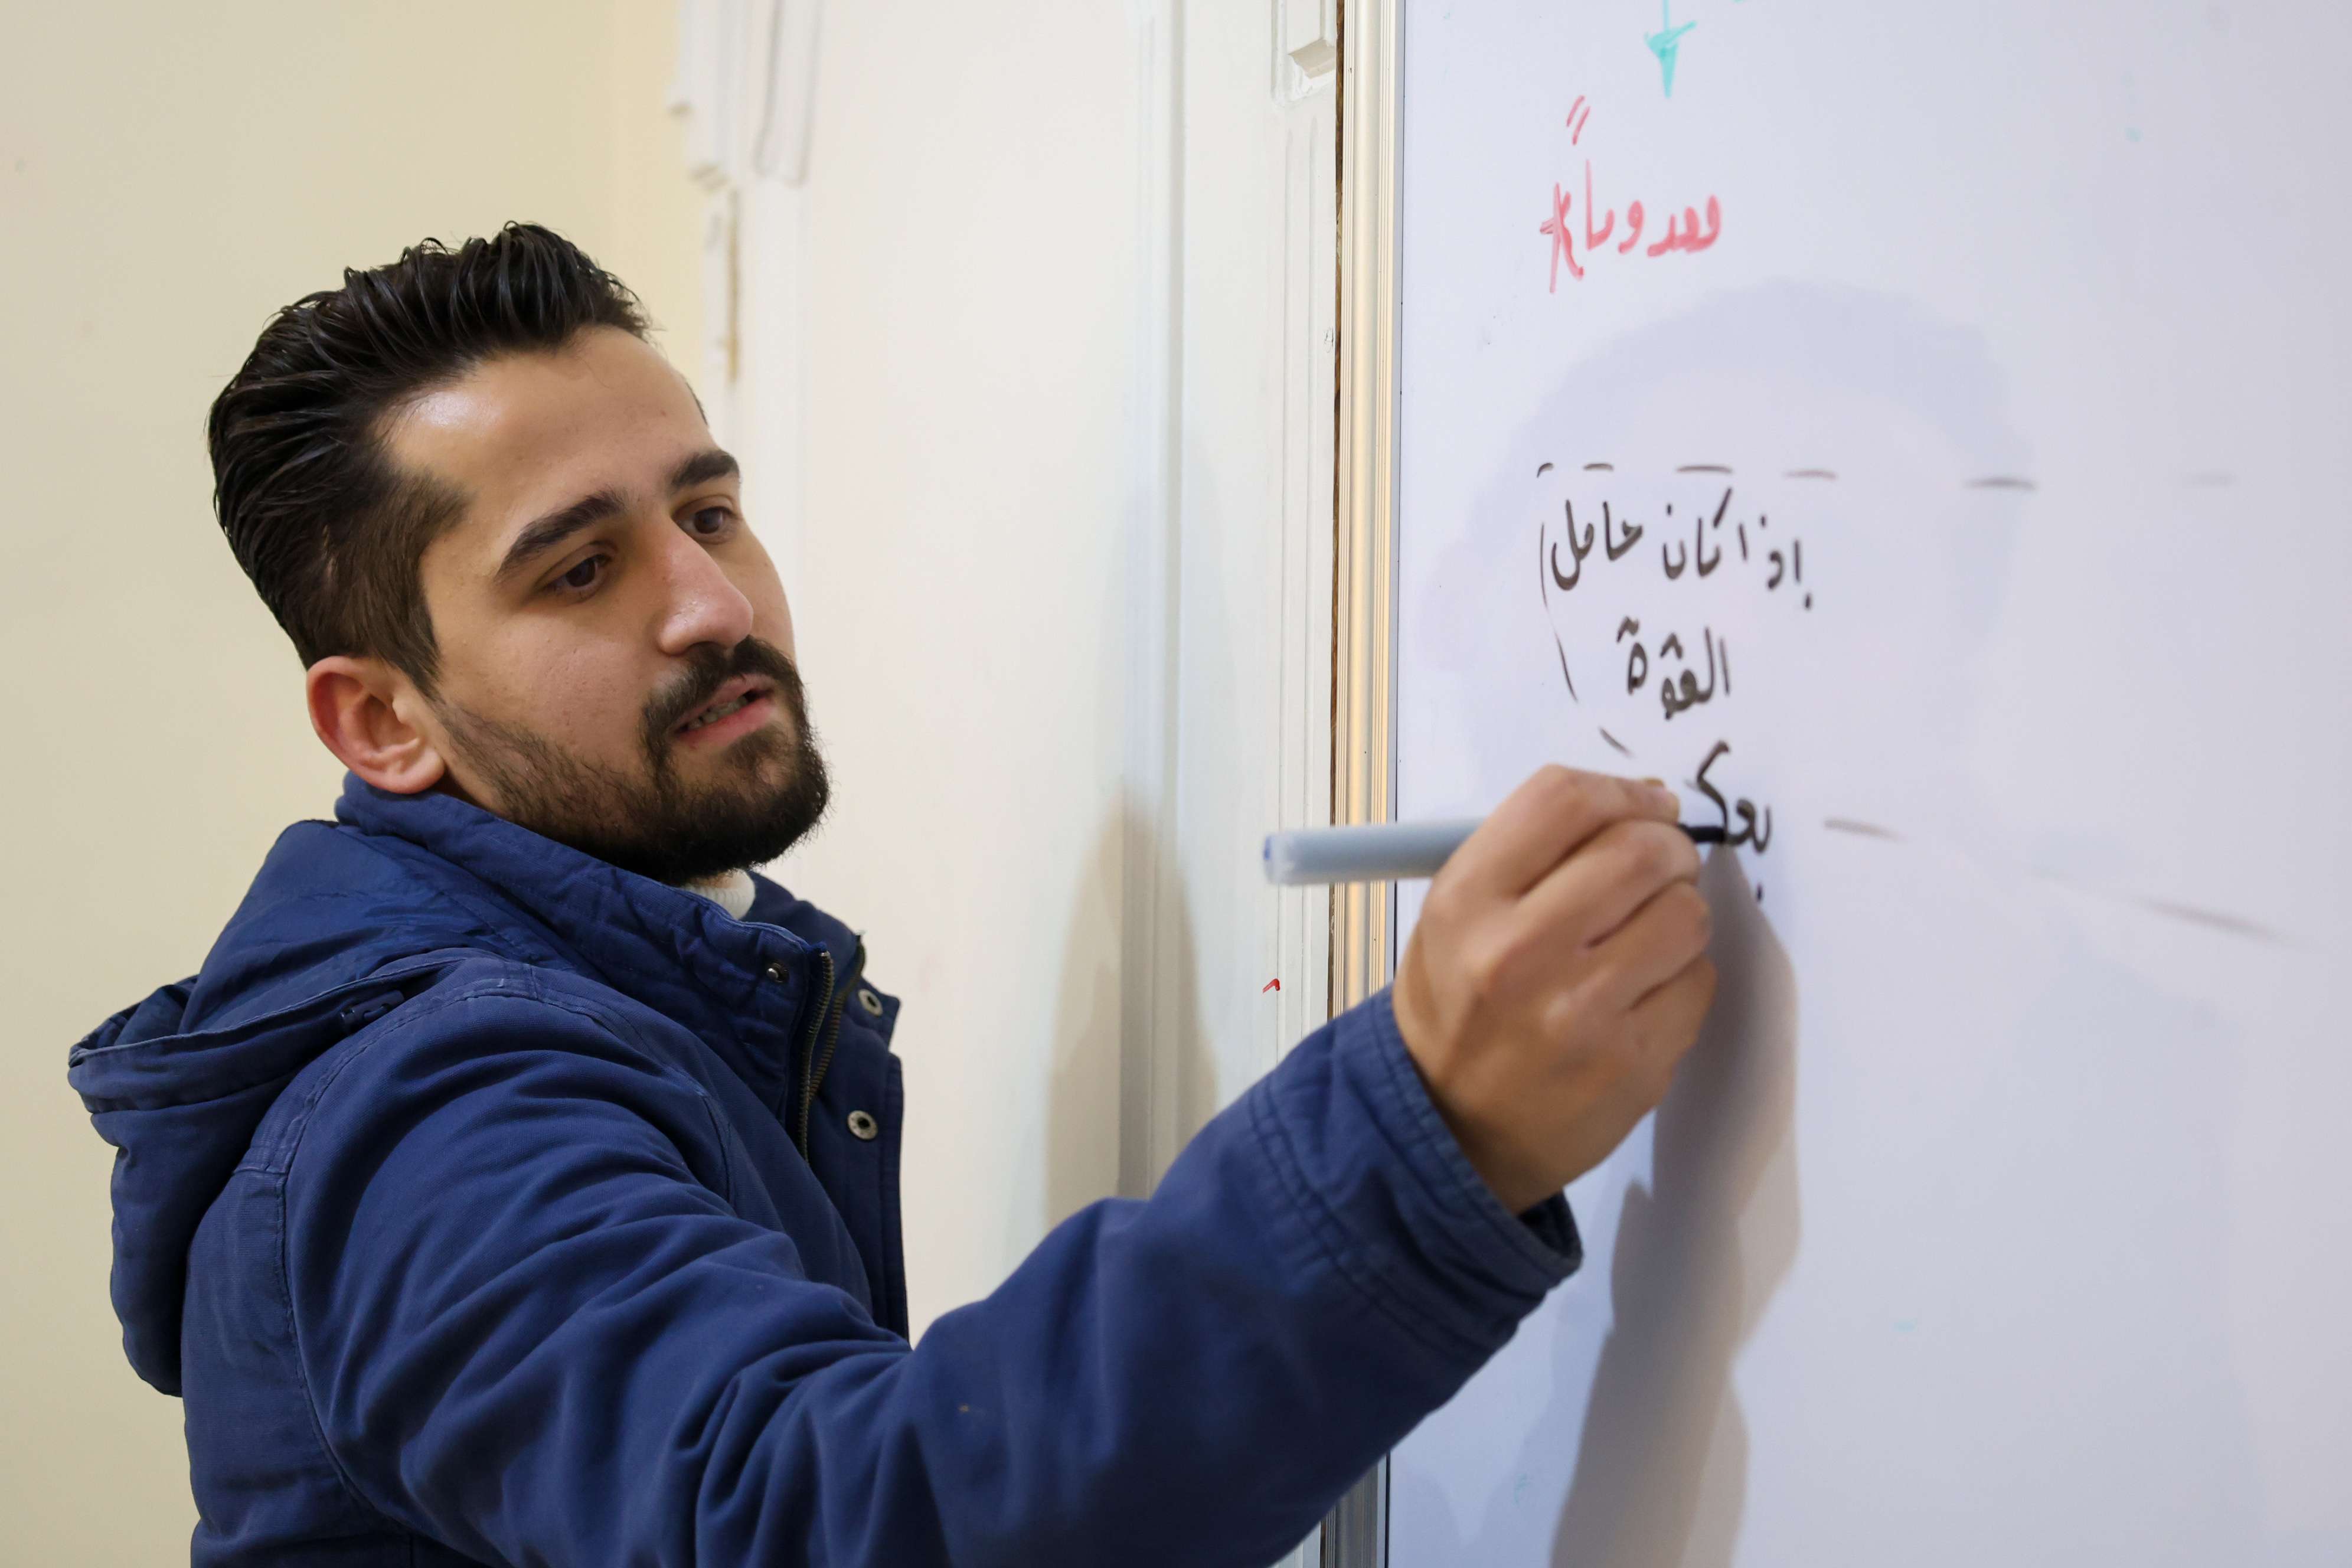 معدوماً
إذا كان حامل
القوة
بعك